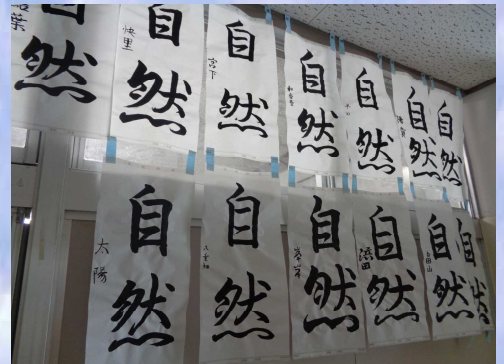 自然
若葉
自然
快里
自然
宮下
自然
自然
自然
自然
自然
太陽
自然
自然
自然
浜田
自然
自然